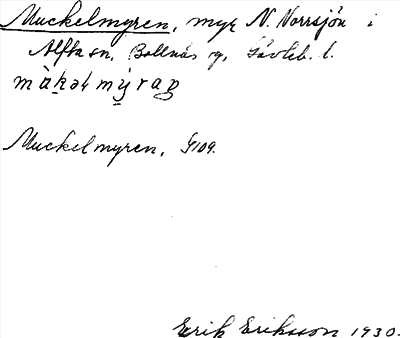 Muckelmyren, myr N. Norrsjön i
Alfta sn, Bollnäs Gävleb. l.
Muckelmyren, G109.
Erik Eriksson 1930.